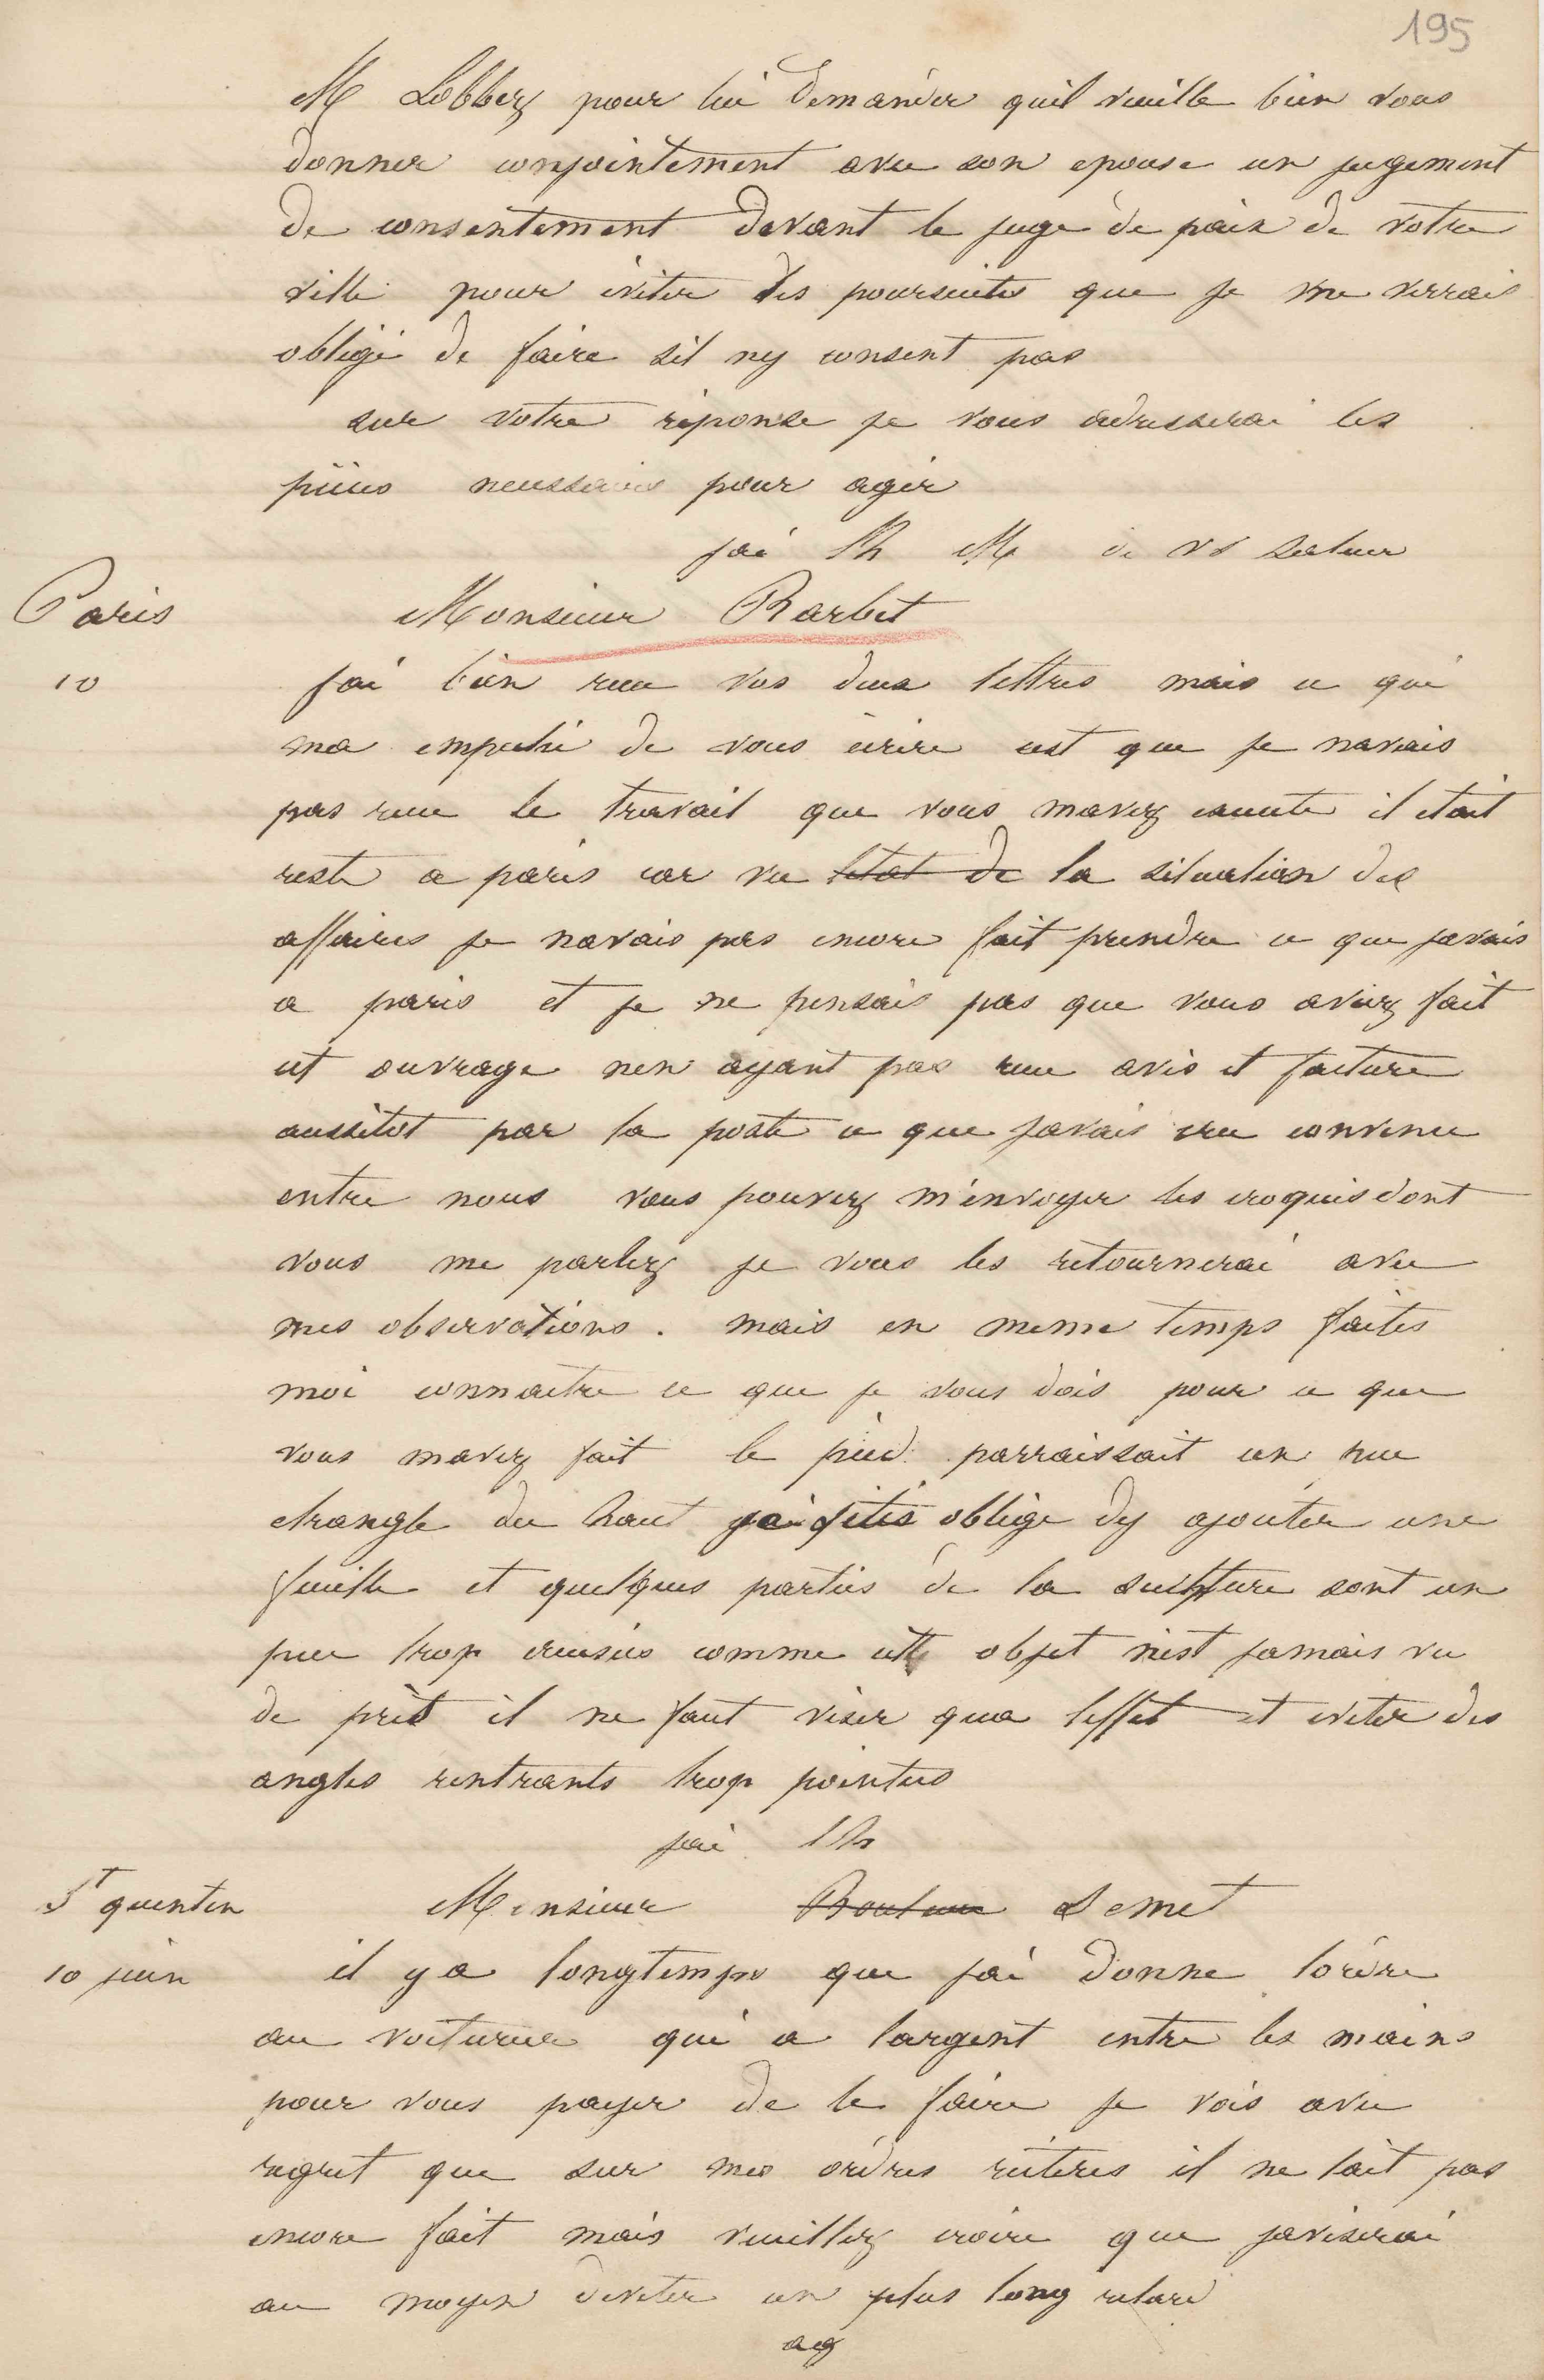 195
M Lobbez pour lui demander quil veuille bien vous
donner conjointement avec son epouse un jugement
de consentement devant le juge de paix de votre
ville pour éviter des poursuites que je me verrais
obligé de faire sil ny consent pas
sur votre réponse je vous adresserai les
pièces necessaires pour agir
jai lh M de vs saluer
Paris Monsieur Barbet
10 jai bien recu vos deux lettres mais ce qui
ma empeché de vous écrire cest que je navais
pas recu le travail que vous mavez execute il etait
reste a paris car vu letat de la situation des
affaires je navais pas encore fait prendre ce que javais
a paris et je ne pensais pas que vous aviez fait
cet ouvrage nen ayant pas recu avis et facture
aussitot par la poste ce que javais cru convenu
entre nous vous pouvez m'envoyer les croquis dont
vous me parlez je vous les retournerai avec
mes observations. mais en meme temps faites
moi connaitre ce que je vous dois pour ce que
vous mavez fait le pied parraissait un peu
etrangle du haut jai étés oblige dy ajouter une
feuille et quelques parties de la sculpture sont un
peu trop creusées comme cette objet n'est jamais vu
de prèt il ne faut viser qua leffet et eviter des
angles rentrants trop pointus
jai lh
St quentin Monsieur Demet
10 juin il y a longtemps que jai donne lordre
au voiturier qui a largent entre les mains
pour vous payer de le faire je vois avec
regret que sur mes ordres reiteres il ne lait pas
encore fait mais veuillez croire que javiserai
au moyen deviter un plus long retard
ag